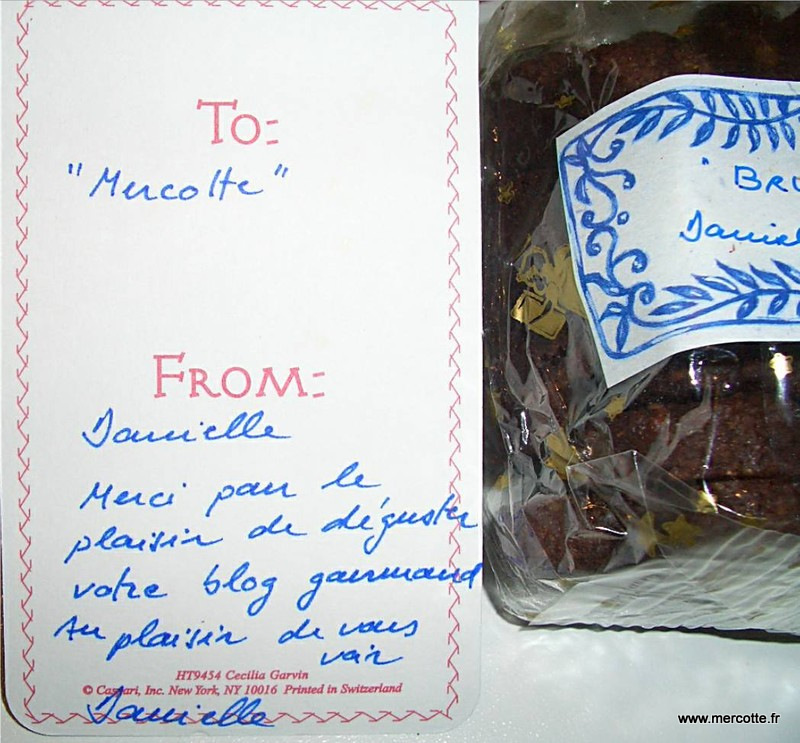 To:
"Mercotte"
From:
Danielle
Merci pour le
plaisir de déguster
votre blog gourmand
Au plaisir de vous
voir
HT9454 Cecilia Garvin
© Caspari, Inc. New York, NY 10016 Printed in Switzerland
Danielle
" BRU
Daniel
www.mercotte.fr